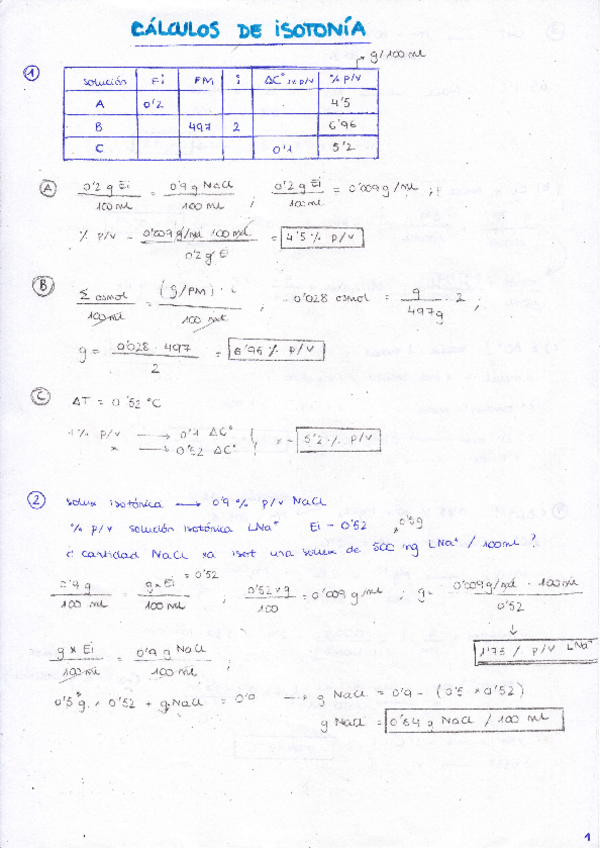 CÁLCULOS DE ISOTONÍA
→ g/100 ml
①
solución | Ei | PM | i | ΔCº 1% p/v | % p/v
A | 0'2 | | | | 4'5
B | | 497 | 2 | | 6'96
C | | | | 0'1 | 5'2
Ⓐ 0'2 g Ei / 100 ml = 0'9 g NaCl / 100 ml ; 0'2 g Ei / 100 ml = 0'009 g/ml ;
% p/v = 0'009 g/ml · 100 ml / 0'2 g Ei = 4'5 % p/v
Ⓑ Σ osmol / 100 ml = (g/PM) · i / 100 ml ; 0'028 osmol = g / 497g · 2 ;
g = 0'028 · 497 / 2 = 6'96 % p/v
Ⓒ ΔT = 0'52 ºC
1% p/v → 0'1 ΔCº
x → 0'52 ΔCº } x = 5'2 % p/v
② soluc isotónica → 0'9 % p/v NaCl
% p/v solución isotónica LNa⁺ Ei = 0'52
0'5g
¿ cantidad NaCl xa isot una soluc de 500 mg LNa⁺ / 100 ml ?
0'9 g / 100 ml = g x Ei = 0'52 / 100 ml ; 0'52 x g / 100 = 0'009 g/ml ; g = 0'009 g/ml · 100 ml / 0'52
↓
1'73 % p/v LNa⁺
g x Ei / 100 ml = 0'9 g NaCl / 100 ml
0'5 g x 0'52 + g NaCl = 0'9 → g NaCl = 0'9 - (0'5 x 0'52)
g NaCl = 0'64 g NaCl / 100 ml
1